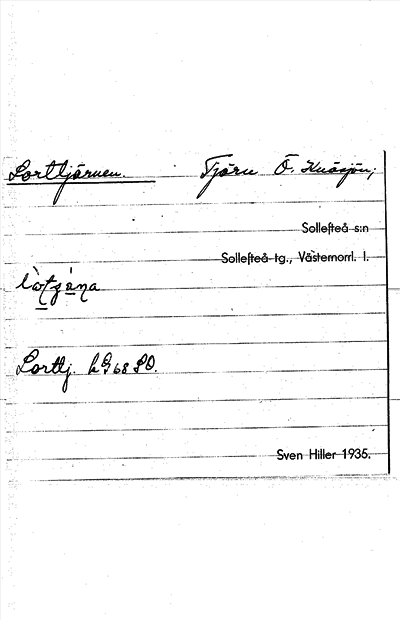 Lorttjärnen. Tjärn Ö. Knäsjön;
Sollefteå s:n
Sollefteå tg., Västernorrl. l.
Lorttj. h 968 SO.
Sven Hiller 1935.